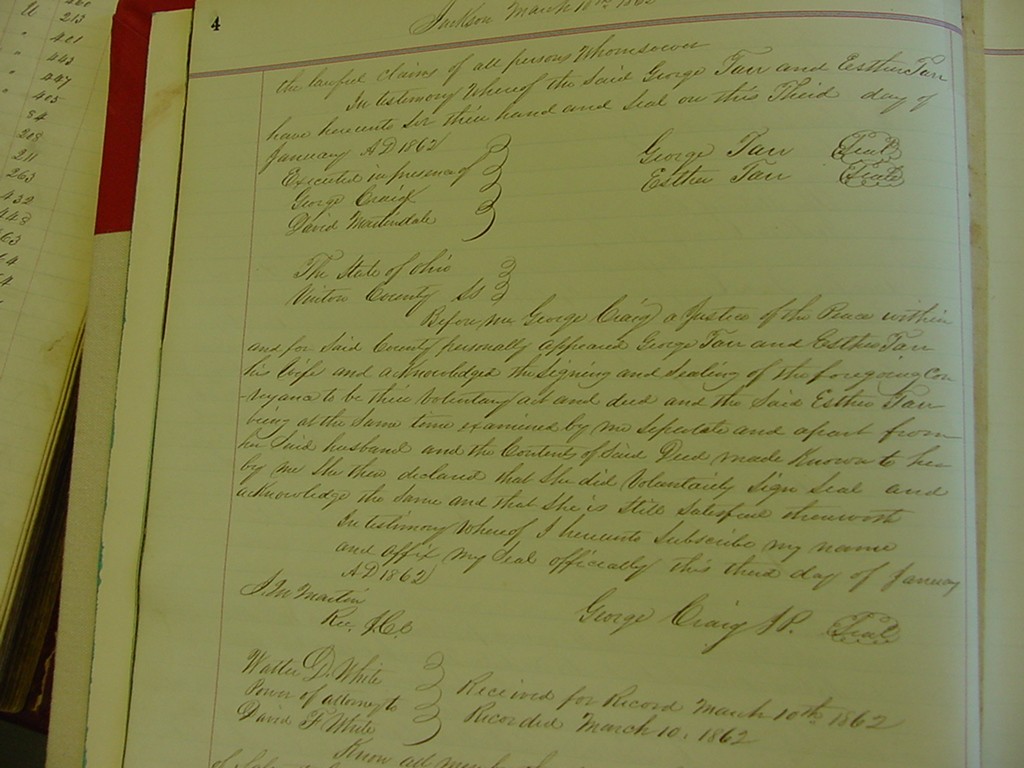 4
Jackson March 10th 1862
the lawful claims of all persons Whomsoever
In testimony Whereof the Said George Tarr and Esther Tarr
have hereunto Set their hand and Seal on this Third day of
January AD 1862
Executed in presence of
George Tarr Seal
George Craig
Esther Tarr Seal
David Martindale
The State of Ohio
Vinton County SS
Before me George Craig a Justice of the Peace within
and for Said County personally appeared George Tarr and Esther Tarr
his Wife and acknowledged the Signing and Sealing of the foregoing Con
-veyance to be their Voluntary act and deed and the Said Esther Tarr
being at the Same time examined by me Seperate and apart from
her Said husband and the Content of Said Deed made Known to her
by me She then declared that She did Voluntarily Sign Seal and
acknowledge the Same and that She is Still Satisfied therewith
In testimony Whereof I hereunto Subscribe my name
and affix my Seal officially this third day of January
AD 1862
J. M Martin
Rec. J. Co
George Craig J.P. Seal
Walter D. White
Power of attorney to
David F. White
Received for Record March 10th 1862
Recorded March 10. 1862
Know all men by
213
401
443
447
405
54
218
211
263
432
443